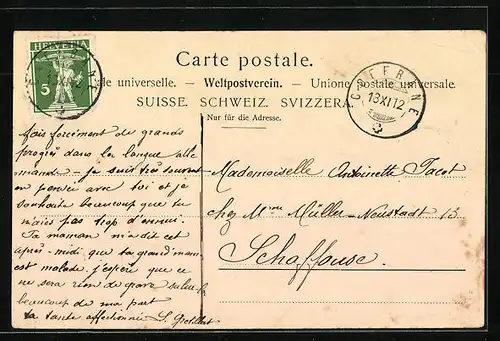 HELVETIA
5
Carte postale.
ale universelle. — Weltpostverein. — Unione postale universale
SUISSE. SCHWEIZ. SVIZZERA.
Nur für die Adresse.
COFFRANE
13.XI.12
Fais forcément de grands
progrès dans la langue alle
mande – je suis très souvent
en pensée avec toi et je
souhaite beaucoup que tu
n'aies pas trop d'ennui.
Ta maman m'a dit cet
après-midi que ta grand'maman
est malade. j'espère que ce
ne sera rien de grave salue-la
beaucoup de ma part
ta tante affectionnée L. Gretillat
Mademoiselle Antoinette Jacot
chez Mme Müller-Neustadt 13
Schaffouse.